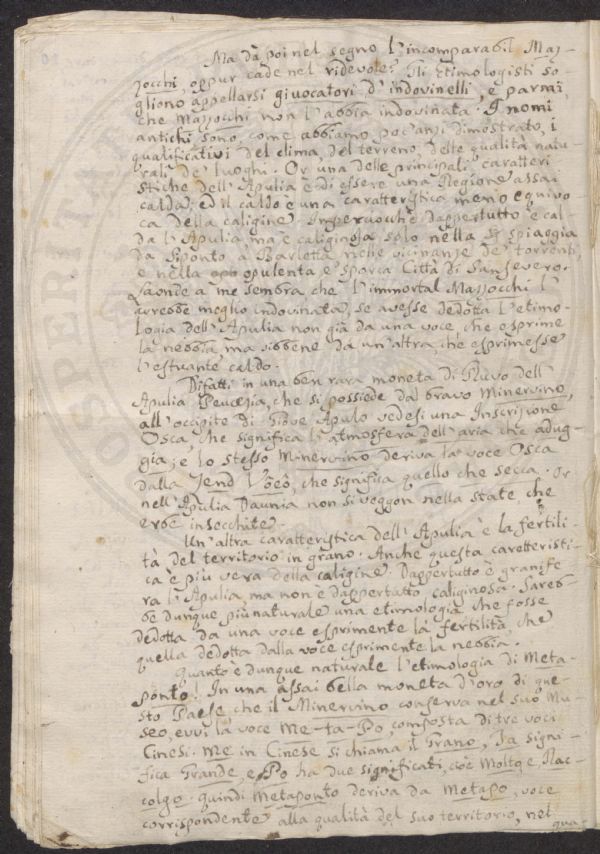 Ma dà poi nel segno l'incomparabil Maz-
zocchi, oppur cade nel ridevole? Gli Etimologisti so-
gliono appellarsi giuocatori d'indovinelli, e parmi,
che Mazzocchi non l'abbia indovinata. I nomi
antichi sono, come abbiamo poc'anzi dimostrato, i
qualificativi del clima, del terreno, delle qualità natu-
rali de' luoghi. Or una delle principali caratteri
stiche dell'Apulia è di essere una Regione assai
calda; ed il caldo è una caratteristica meno equivo
ca della caligine. Imperciocchè dappertutto è cal-
da l'Apulia, ma è caliginosa solo nella spiaggia
da Siponto a Barletta, nelle vicinanze de' torrenti,
e nella opulenta e sporca Città di Sansevero.
Laonde a me sembra che l'immortal Mazzocchi l'
avrebbe meglio indovinata, se avesse dedotta l'etimo-
logia dell'Apulia non già da una voce, che esprime
la nebbia, ma sibbene da un'altra, che esprimesse
l'estuante caldo.
Difatti in una ben rara moneta di Ruvo dell'
Apulia Peucezia, che si possiede dal bravo Minervino,
all'occipite di Giove Apulo vedesi una Inscrizione
Osca, che significa l'atmosfera dell'aria che adug-
gia; e lo stesso Minervino deriva la voce Osca
dalla Zend Voeò, che significa quello che secca. Or
nell'Apulia Daunia non si veggon nella state che
erbe insecchite.
Un'altra caratteristica dell'Apulia è la fertili-
tà del territorio in grano. Anche questa caratteristi-
ca è più vera della caligine. Dappertutto è granife
ra l'Apulia ma non è dappertutto caliginosa. Sareb-
be dunque più naturale una etimologia che fosse
dedotta da una voce esprimente la fertilità, che
quella dedotta dalla voce esprimente la nebbia.
Quanto è dunque naturale l'etimologia di Meta-
ponto! In una assai bella moneta d'oro di que-
sto Paese che il Minervino conserva nel suo Mu-
seo, evvi la voce Me-ta-Po, composta di tre voci
Cinesi. Me in Cinese si chiama il Grano, Ta signi-
fica Grande, e Po ha due significati, cioè Molto, e Rac-
colgo. quindi Metaponto deriva da Metapo, voce
corrispondente alla qualità del suo territorio, nel
qua-